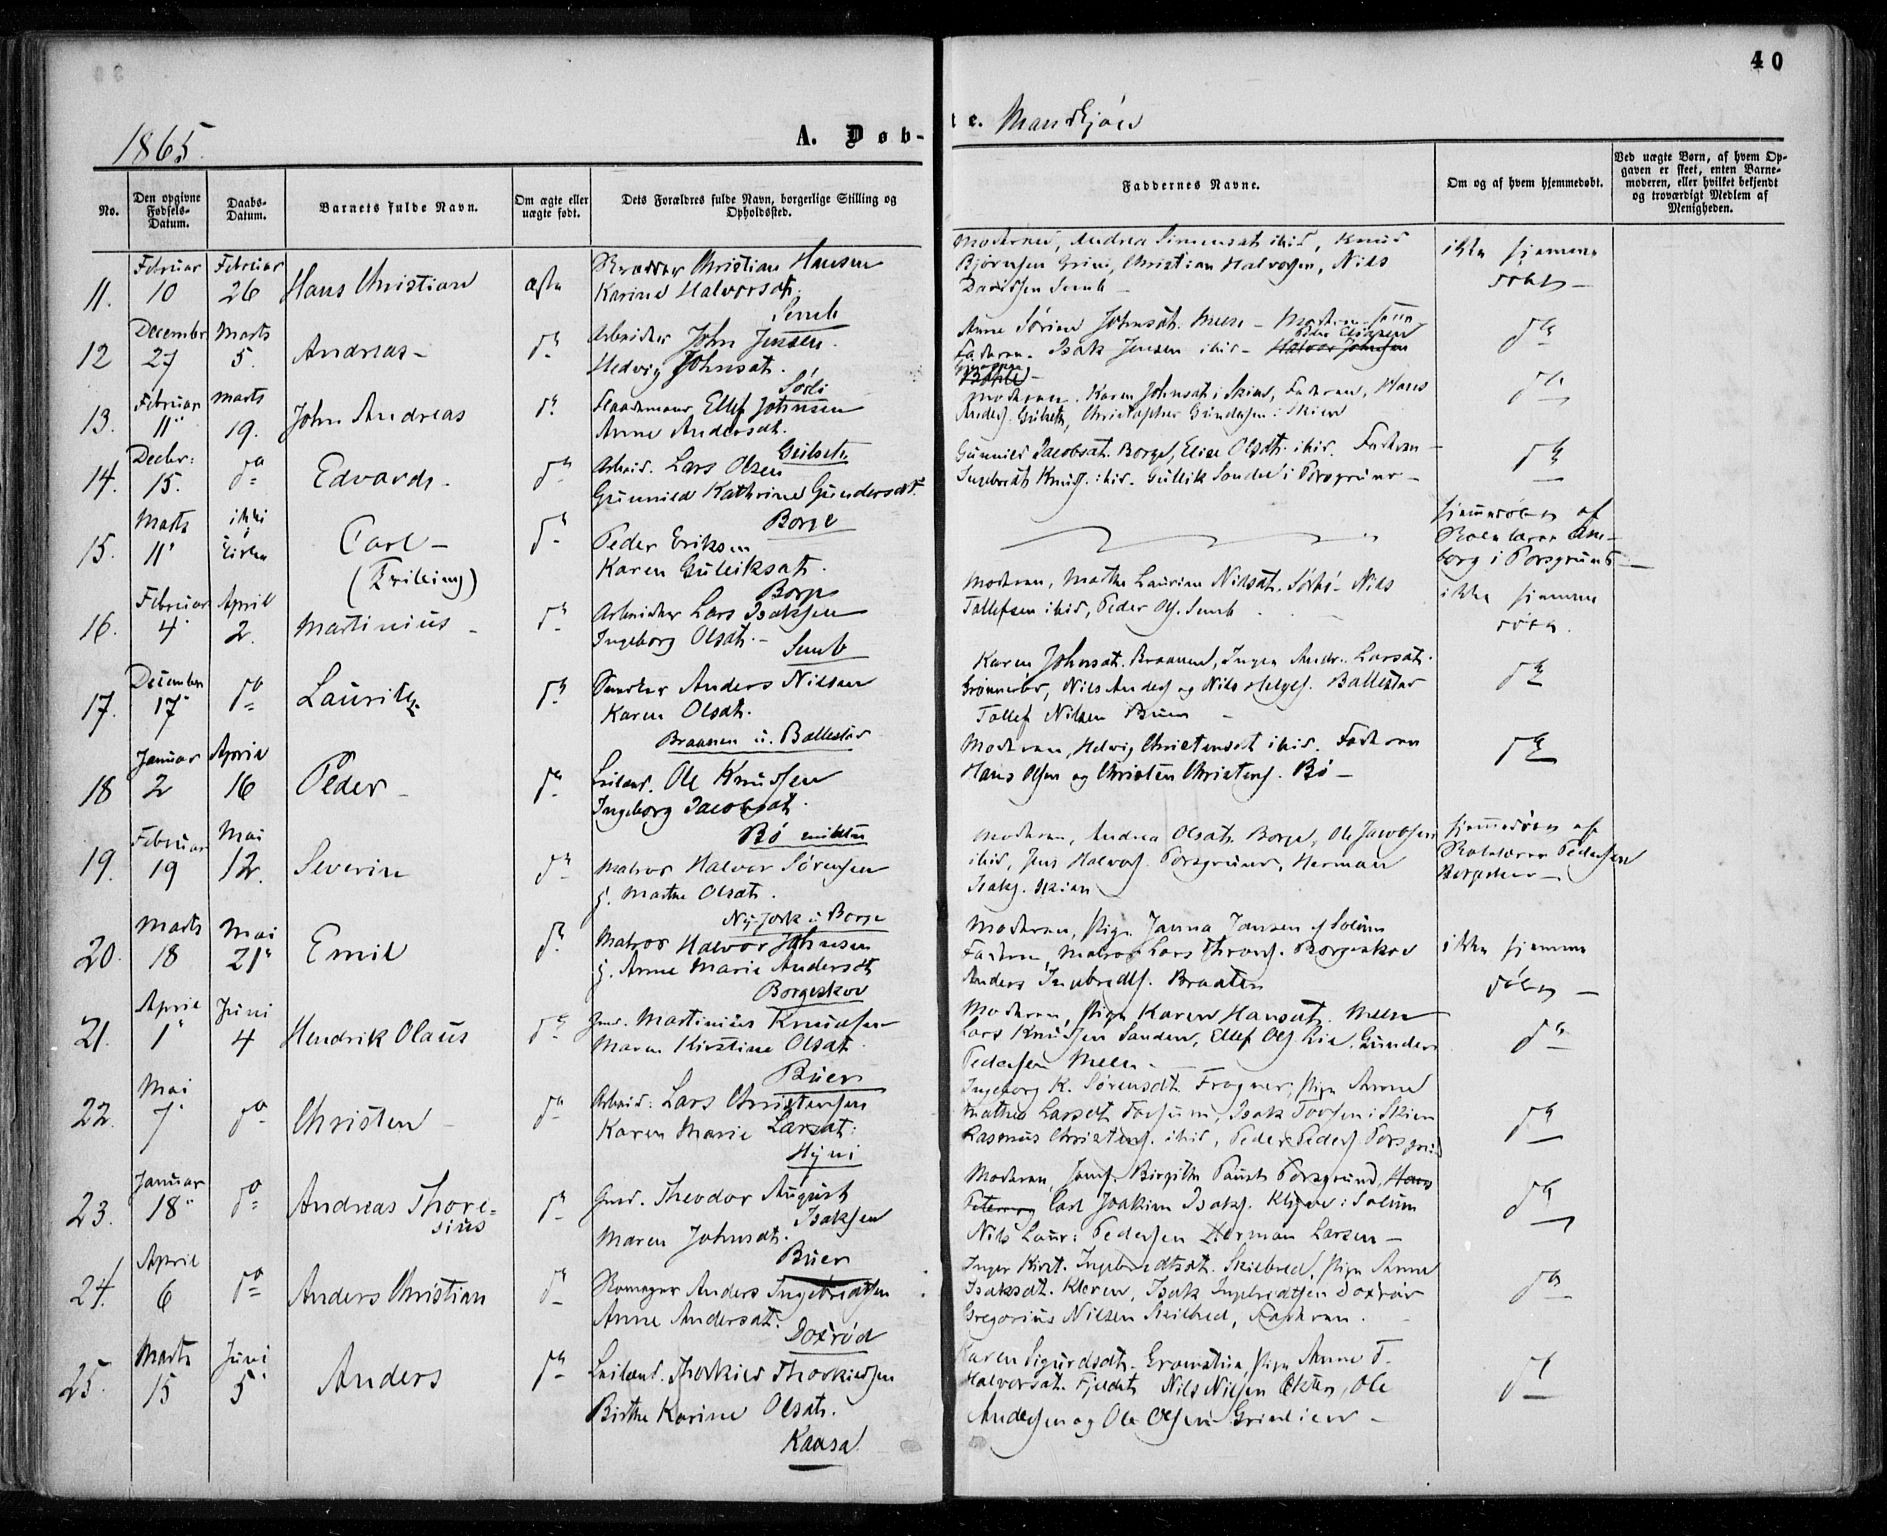 40
1865.
A. Døb-
te. Mandkjøn
No.
Den opgivne Fødsels-Datum.
Daabs-Datum.
Barnets fulde Navn.
Om ægte eller uægte født.
Dets Forældres fulde Navn, borgerlige Stilling og Opholdssted.
Faddernes Navne.
Om og af hvem hjemmedøbt.
Ved uægte Børn, af hvem Opgaven er skeet, enten Barnemoderen, eller hvilket bekjendt og troværdigt Medlem af Menigheden.
11. Februar 10 Februar 26 Hans Christian ægte
Skrædder Christian Hansen
Karine Halvorsdt.
Semb
Moderen, Andrea Simensdt. ibid, Knud
Bjørnsen Grini, Christian Halvorsen, Nils
Davidsen Semb -
ikke hjemme
døbt -
12 December 27 Marts 5. Andreas - do
Arbeider John Jensen.
Hedvig Johnsdt.
Anne Sørine Johnsdt. Meen - Moderen
Faderen. Isak Jensen ibid - Halvor Johnsen
do
13. Februar 11" Marts 19. John Andreas do
Ellef Johnsen
Anne Andersdt.
Gulset
Moderen. Karen Johnsdt. i Skien, Faderen, Hans
Anders. Gulseth, Christopher Gundersen i Skien
do
14. Decbr: 15. do Edvard. do
Arbeid. Lars Olsen
Gunnild Kathrine Gundersdt.
Borge
Gunnild Jacobsdt. Borge, Elise Olsdt. ibid. Faderen -
Ingebredt Knuds. ibid. Gullik Sondre i Porsgrund -
do
15. Marts 11" ikke i Kirken Carl - do
(Trilling)
Peder Eriksen
Karen Gulliksdt.
Borge
hjemmedøbt af
Skolelærer Am-
borg i Porsgrund -
16. Februar 4" April 2. Martinius - do
Arbeider Lars Isaksen
Ingeborg Olsdt. -
Semb
Moderen, Marthe Laurine Nilsdt. Nils
Tollefsen ibid, Peder Ols. Semb -
ikke hjemme
døbt.
17. December 17" do Lauritz do
Anders Nilsen
Karen Olsdt.
Braanen u. Ballestad
Karen Johnsdt. Braanen, Inger Andr. Larsdt.
Nils Anders. og Nils Helges. Ballestad
Tollef Nilsen Buer -
do
18 Januar 2 April 16 Peder - do
Leilend. Ole Knudsen
Ingeborg Jacobsdt.
Bø
Moderen, Helvig Christensdt ibid. Faderen
Hans Olsen og Christen Christens. Bø -
do
19. Februar 19 Mai 12. Severin do
Matros Halvor Sørensen
g. Marthe Olsdt.
Ny-Jork u. Borge
Moderen, Andrea Olsdt. Borge, Ole Jacobsen
ibid, Jens Halvors. Porsgrund, Herman
Isaks. Skien
hjemmedøbt af
Skolelærer Pedersen
-
20. Marts 18 Mai 21" Emil do
Matros Halvor Johnsen
g. Anne Marie Andersdt
Borgeskov
Moderen, Pige Janna Jansen af Solum
Faderen, Matros Lars Thrond. Borgeskov
Anders Ingebredts. Braaten
ikke hjemme
døbt -
21. April 1" Juni 4 Hendrik Olaus do
Gmd. Martinius Knudsen
Maren Kirstine Olsdt.
Buer
Moderen, Pige Karen Hansdt. Meen
Lars Knudsen Sanden, Ellef Ols. Lia. Gunder
Pedersen Meen -
do
22. Mai 7" do Christen - do
Arbeid: Lars Christensen
Karen Marie Larsdt:
Hyni
Ingeborg K. Sørensdt. Frogner, Pige Anne
Mathea Larsdt. Fossum, Isak Torsen i Skien
Rasmus Christens. ibid, Peder Peders. Porsgrund
do
23. Januar 18" do Andreas Thore=
sius do
Gmd. Theodor August
Isaksen
Maren Johnsdt.
Buer
Moderen, Jomf. Birgitte Paust Porsgrund, Hans
Petersen Carl Joakim Isaks. Kleven i Solum
Nils Laur: Pedersen Herman Larsen -
do
24. April 6 do Anders Christian do
Skomager Anders Ingebredtsen
Anne Andersdt.
Doxrød
Inger Kirst. Ingebredtsdt. Skilbred, Pige Anne
Isaksdt. Kleven, Isak Ingebredtsen Doxrød
Gregorius Nielsen Skilbred, Faderen.
do
25. Marts 15 Juni 5 Anders do
Leilend. Thorkild Thorkildsen
Birthe Karine Olsdt.
Kaasa
Karen Sigurdsdt. Gromstua, Pige Anne T.
Halvorsdt. Fjeldet Nils Nilsen Økter, Ole
Andersen og Ole Olsen Grinilien -
do